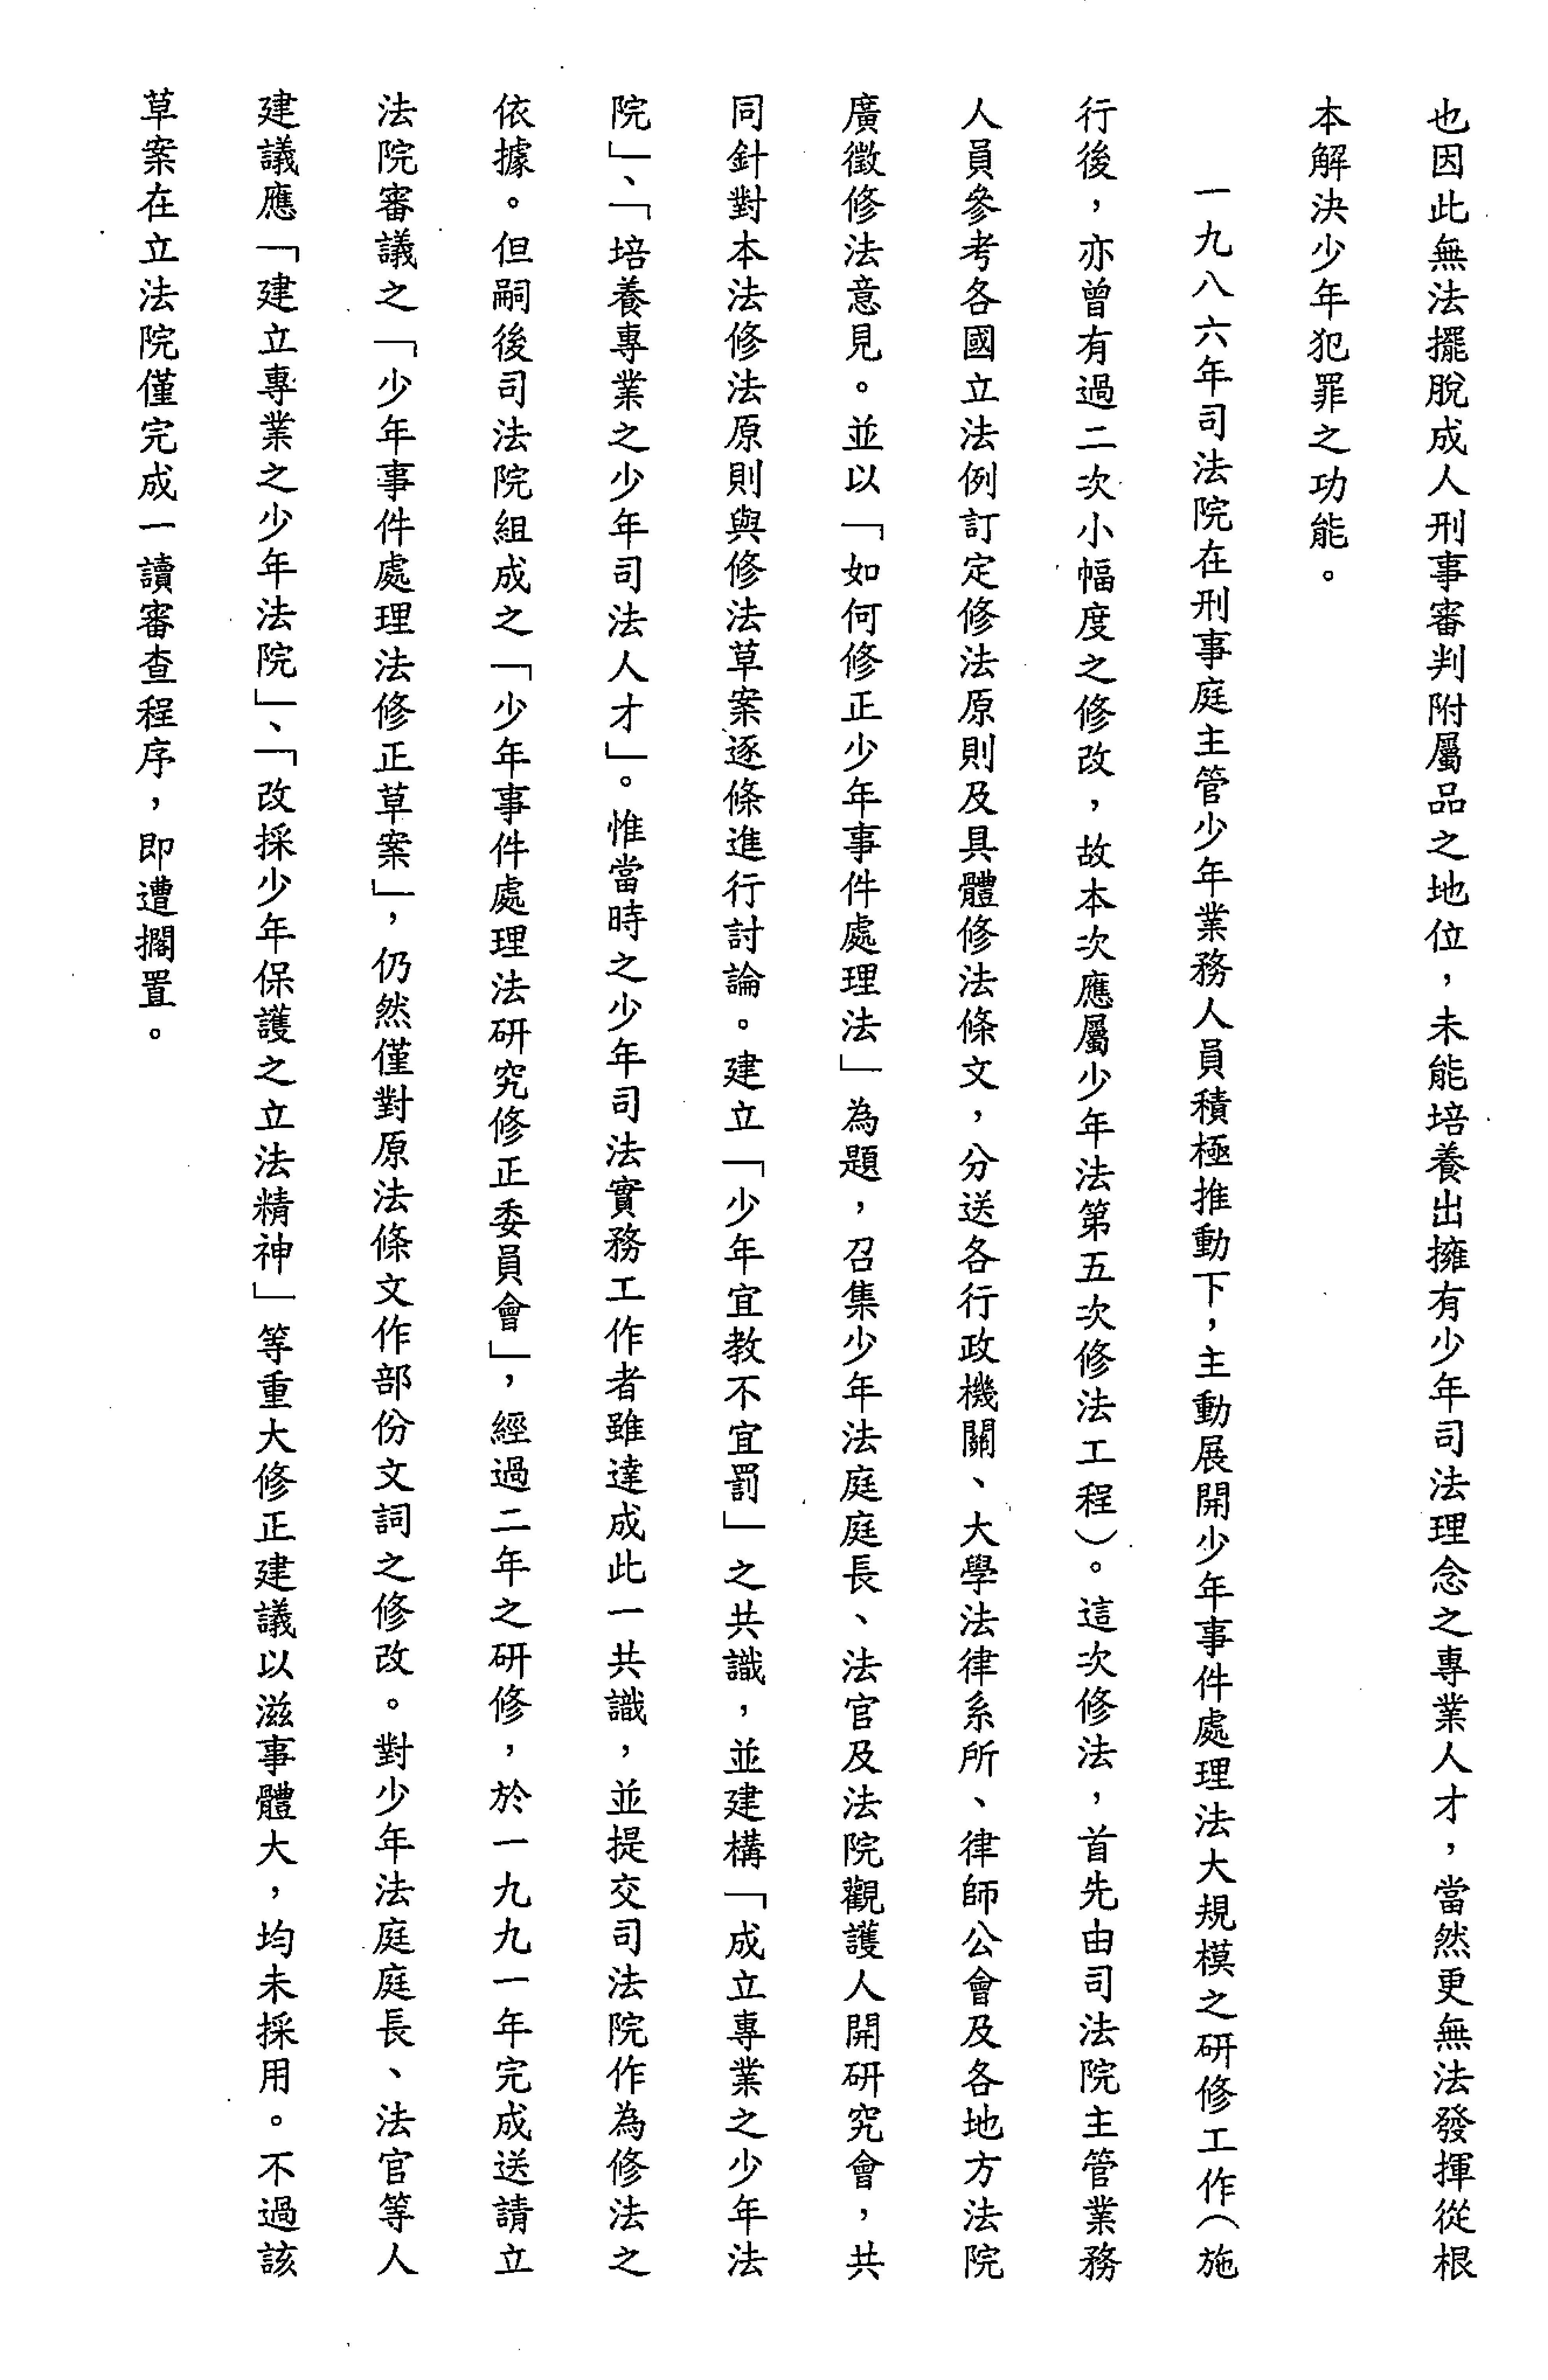 也因此無法擺脫成人刑事審判附屬品之地位，未能培養出擁有少年司法理念之專業人才，當然更無法發揮從根
本解決少年犯罪之功能。
一九八六年司法院在刑事庭主管少年業務人員積極推動下，主動展開少年事件處理法大規模之研修工作（施
行後，亦曾有過二次小幅度之修改，故本次應屬少年法第五次修法工程）。這次修法，首先由司法院主管業務
人員參考各國立法例訂定修法原則及具體修法條文，分送各行政機關、大學法律系所、律師公會及各地方法院
廣徵修法意見。並以「如何修正少年事件處理法」為題，召集少年法庭庭長、法官及法院觀護人開研究會，共
同針對本法修法原則與修法草案逐條進行討論。建立「少年宜教不宜罰」之共識，並建構「成立專業之少年法
院」、「培養專業之少年司法人才」。惟當時之少年司法實務工作者雖達成此一共識，並提交司法院作為修法之
依據。但嗣後司法院組成之「少年事件處理法研究修正委員會」，經過二年之研修，於一九九一年完成送請立
法院審議之「少年事件處理法修正草案」，仍然僅對原法條文作部份文詞之修改。對少年法庭庭長、法官等人
建議應「建立專業之少年法院」、「改採少年保護之立法精神」等重大修正建議以滋事體大，均未採用。不過該
草案在立法院僅完成一讀審查程序，即遭擱置。